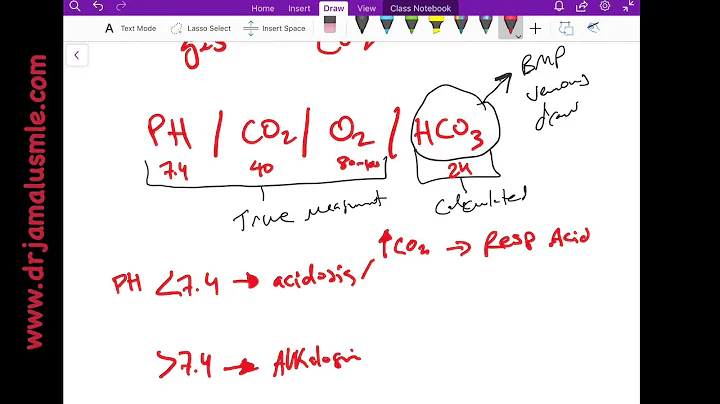 Home Insert Draw View Class Notebook
A Text Mode Lasso Select Insert Space
ges CO2
BMP
venous
draw
PH / CO2 / O2 / HCO3
7.4 40 80-100 24
True Calculated
↑CO2 → Resp Acid
PH <7.4 → acidosis /
>7.4 →
www.drjamalusmle.com